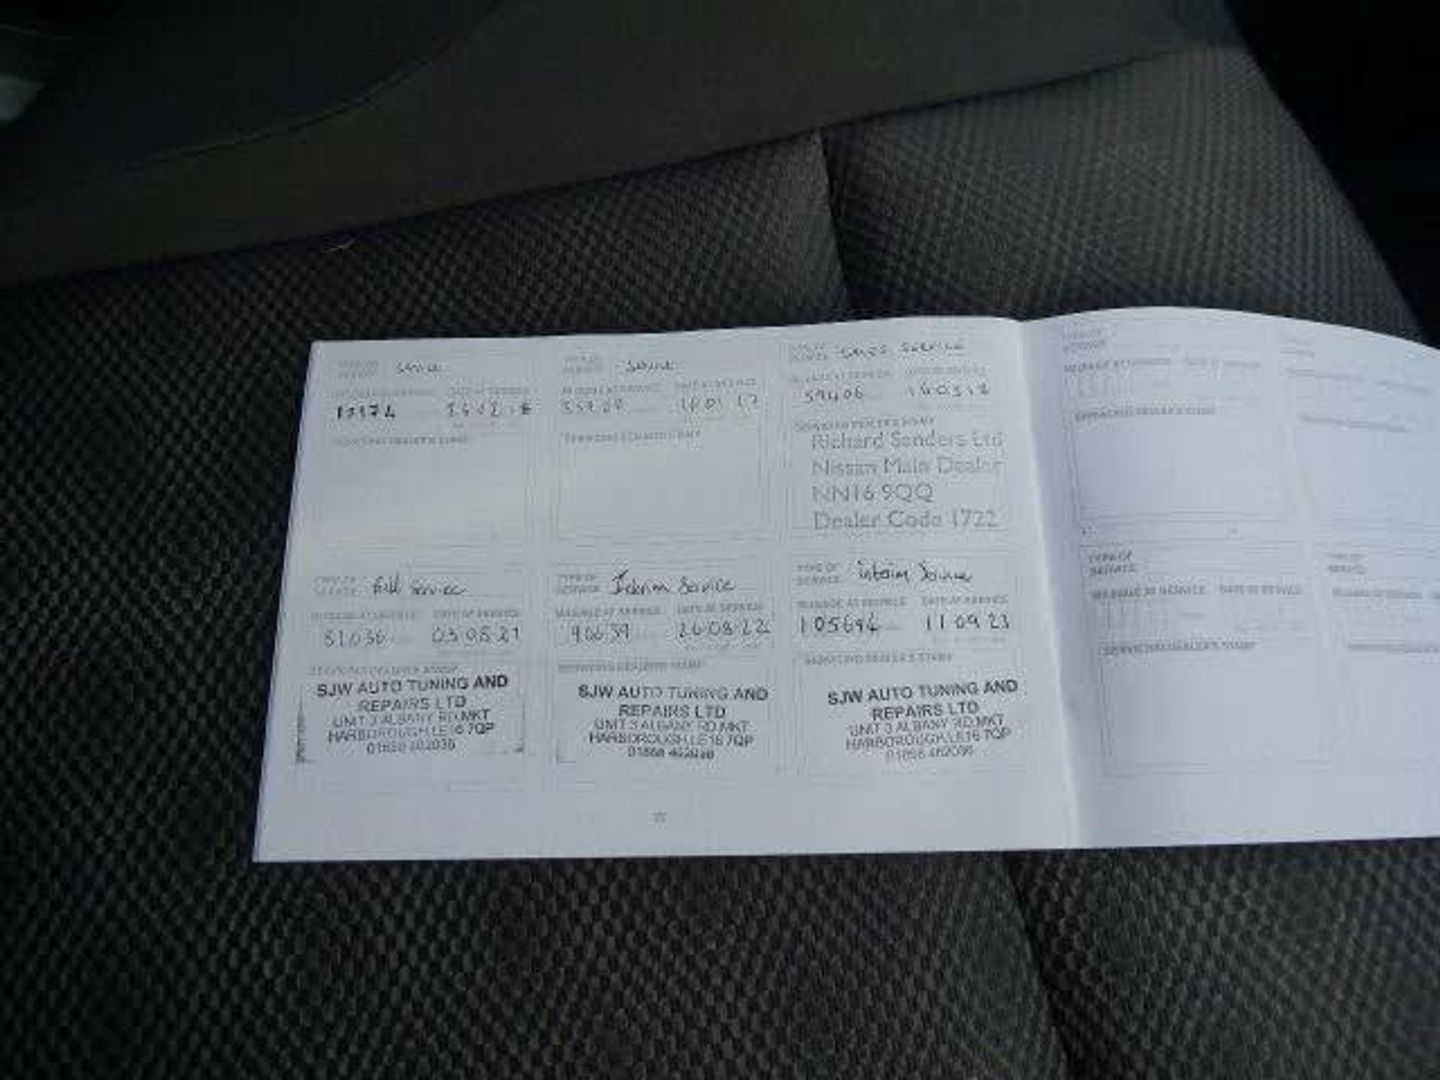 TYPE OF SERVICE Service
MILEAGE AT SERVICE DATE AT SERVICE
24 02 16
SERVICING DEALER'S STAMP
TYPE OF SERVICE Service
MILEAGE AT SERVICE DATE AT SERVICE
18 01 17
SERVICING DEALER'S STAMP
TYPE OF SERVICE Service
MILEAGE AT SERVICE DATE AT SERVICE
59406 14 03 18
SERVICING DEALER'S STAMP
Richard Sanders Ltd
Nissan Main Dealer
NN16 9QQ
Dealer Code 1722
TYPE OF SERVICE Full Service
MILEAGE AT SERVICE DATE AT SERVICE
81036 03 08 21
SERVICING DEALER'S STAMP
SJW AUTO TUNING AND
REPAIRS LTD
UNIT 3 ALBANY RD,MKT
HARBOROUGH,LE16 7QP
01858 462036
TYPE OF SERVICE Interim Service
MILEAGE AT SERVICE DATE AT SERVICE
90639 26 08 22
SERVICING DEALER'S STAMP
SJW AUTO TUNING AND
REPAIRS LTD
UNIT 3 ALBANY RD,MKT
HARBOROUGH,LE16 7QP
01858 462036
TYPE OF SERVICE Interim Service
MILEAGE AT SERVICE DATE AT SERVICE
105694 11 09 23
SERVICING DEALER'S STAMP
SJW AUTO TUNING AND
REPAIRS LTD
UNIT 3 ALBANY RD,MKT
HARBOROUGH,LE16 7QP
01858 462036
TYPE OF SERVICE
MILEAGE AT SERVICE DATE AT SERVICE
SERVICING DEALER'S STAMP
TYPE OF SERVICE
MILEAGE AT SERVICE DATE AT SERVICE
SERVICING DEALER'S STAMP
TYPE OF SERVICE